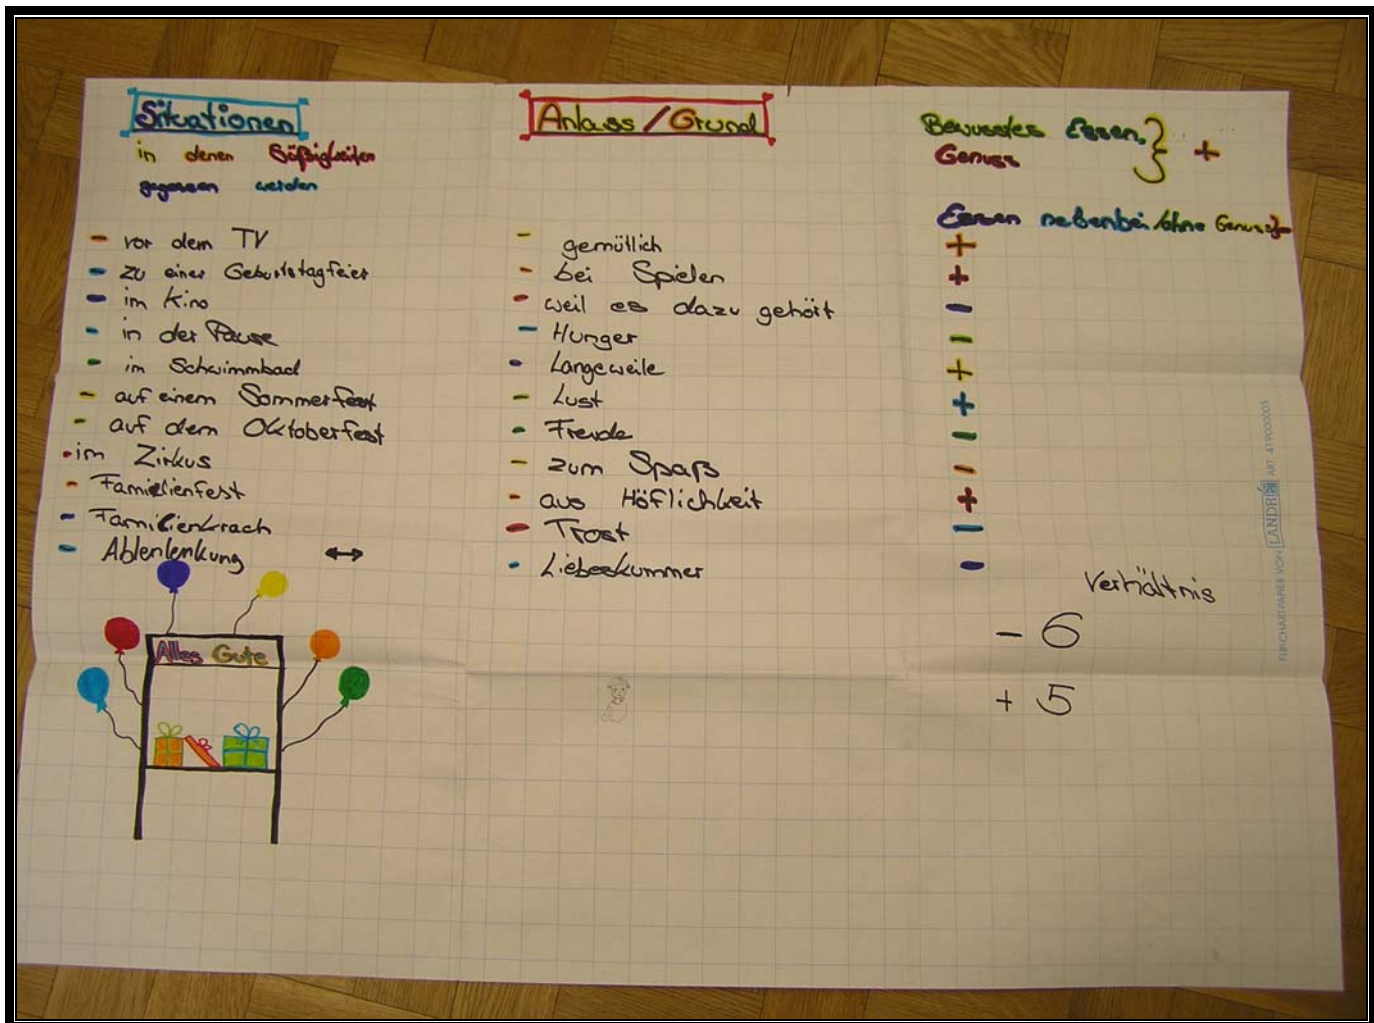 Situationen
in denen Süßigkeiten
gegessen werden
- vor dem TV
- zu einer Geburtstagfeier
- im Kino
- in der Pause
- im Schwimmbad
- auf einem Sommerfest
- auf dem Oktoberfest
- im Zirkus
- Familienfest
- Familienkrach
- Ablenlenkung ↔
Alles Gute
Anlass / Grund
- gemütlich
- bei Spielen
- weil es dazu gehört
- Hunger
- Langeweile
- Lust
- Freude
- zum Spaß
- aus Höflichkeit
- Trost
- Liebeskummer
Bewusstes Essen, } +
Genuss
Essen nebenbei/ohne Genuss} -
+
+
-
-
+
+
-
-
+
-
-
Verhältnis
- 6
+ 5
FLIP-CHARTPAPIER VON LANDRÉ ART. 419000003